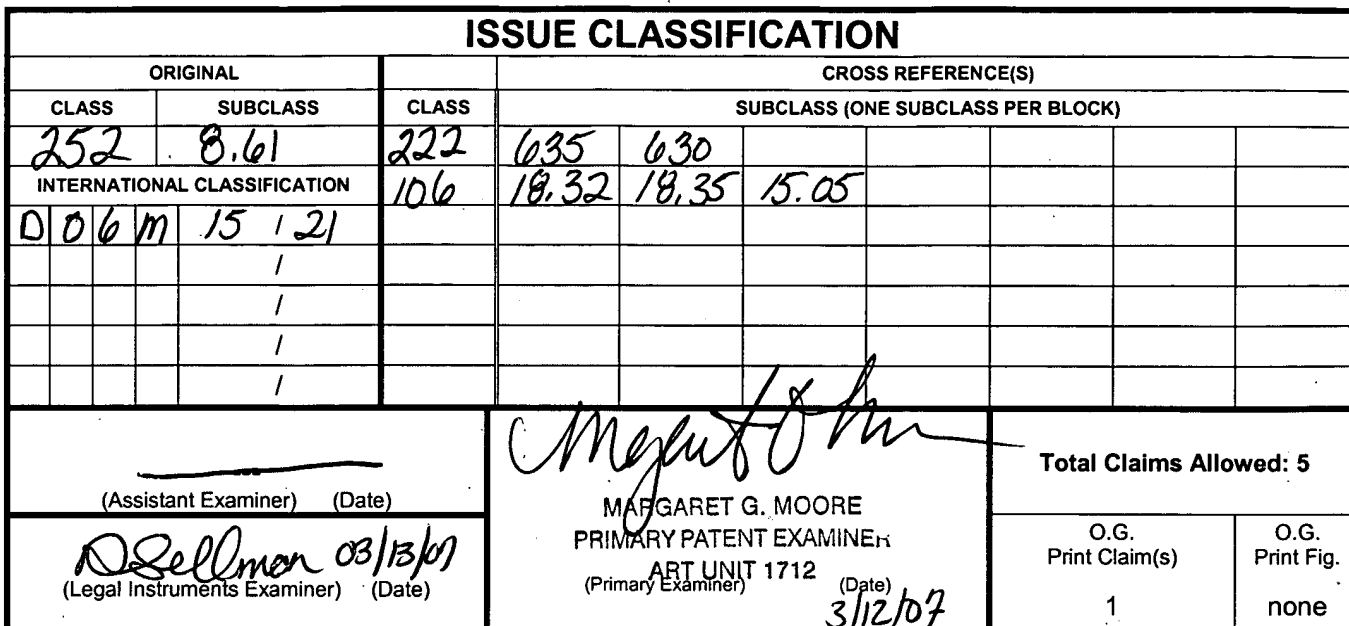 ISSUE CLASSIFICATION
ORIGINAL CROSS REFERENCE(S)
CLASS SUBCLASS CLASS SUBCLASS (ONE SUBCLASS PER BLOCK)
252 8.61 222 635 630
INTERNATIONAL CLASSIFICATION 106 18.32 18.35 15.05
D 0 6 M 15 / 21
/
/
/
/
(Assistant Examiner) (Date)
DSellman 03/13/07
(Legal Instruments Examiner) (Date)
MARGARET G. MOORE
PRIMARY PATENT EXAMINER
ART UNIT 1712
(Primary Examiner) (Date)
3/12/07
Total Claims Allowed: 5
O.G. Print Claim(s)
1
O.G. Print Fig.
none